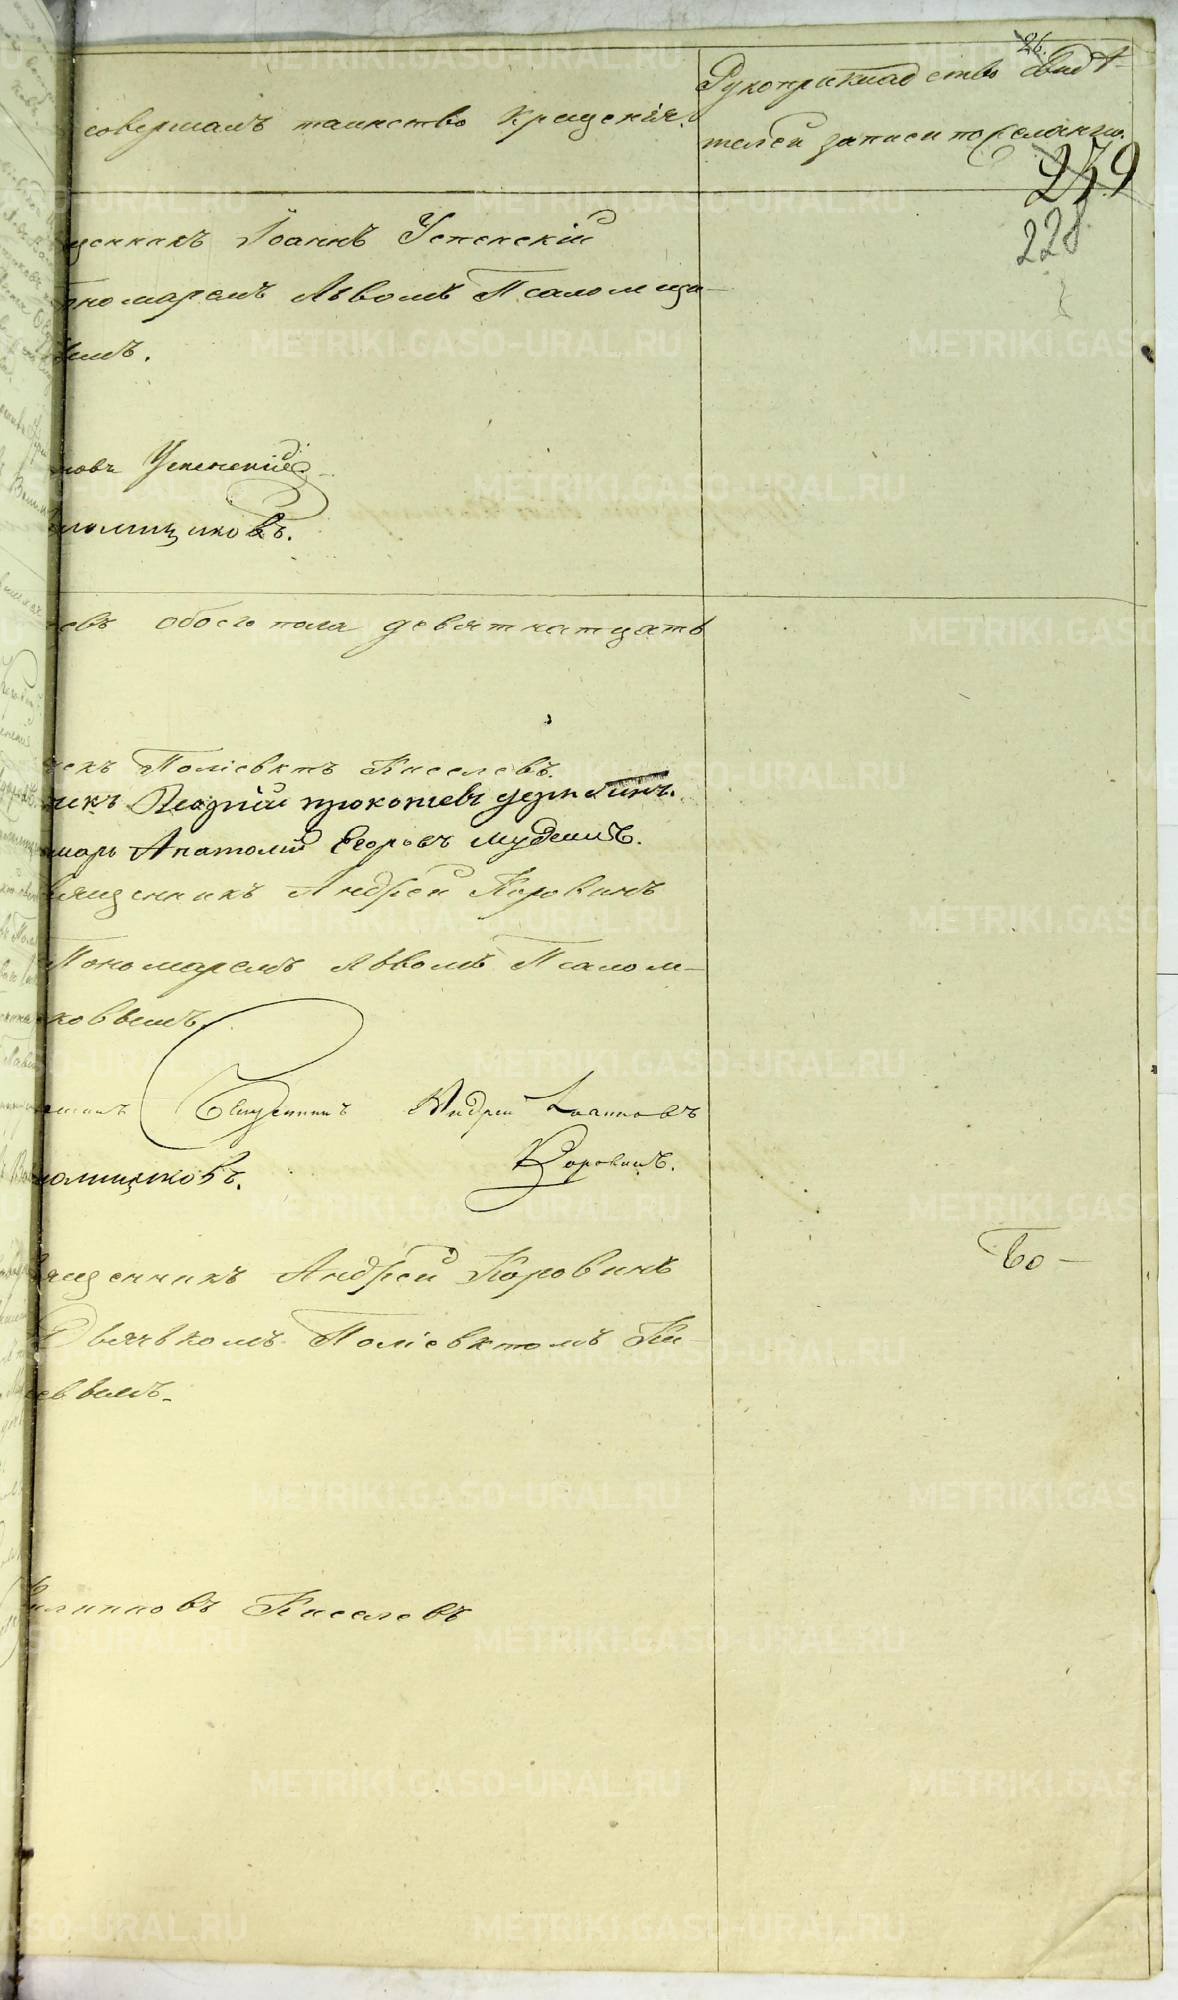 26.
совершалъ таинство крещенія.
Рукоприкладство свидѣ-
телей записи по желанію.
239
228
щенникъ Іоаннъ Успенскій
номаремъ Львомъ Псаломщи-
вымъ.
новъ Успенскій
ломщиковъ.
обоего пола девятнатцать
Поліевктъ Киселевъ.
Анатолій Егоровъ
вященникъ Андрей Коровинъ
Пономаремъ Львомъ Псалом-
ковымъ.
Священникъ Андрей Іоанновъ
Коровинъ.
ломщиковъ.
вященникъ Андрей Коровинъ
Дьячкомъ Поліевктомъ Ки-
евымъ.
Киселевъ
METRIKI.GASO-URAL.RU